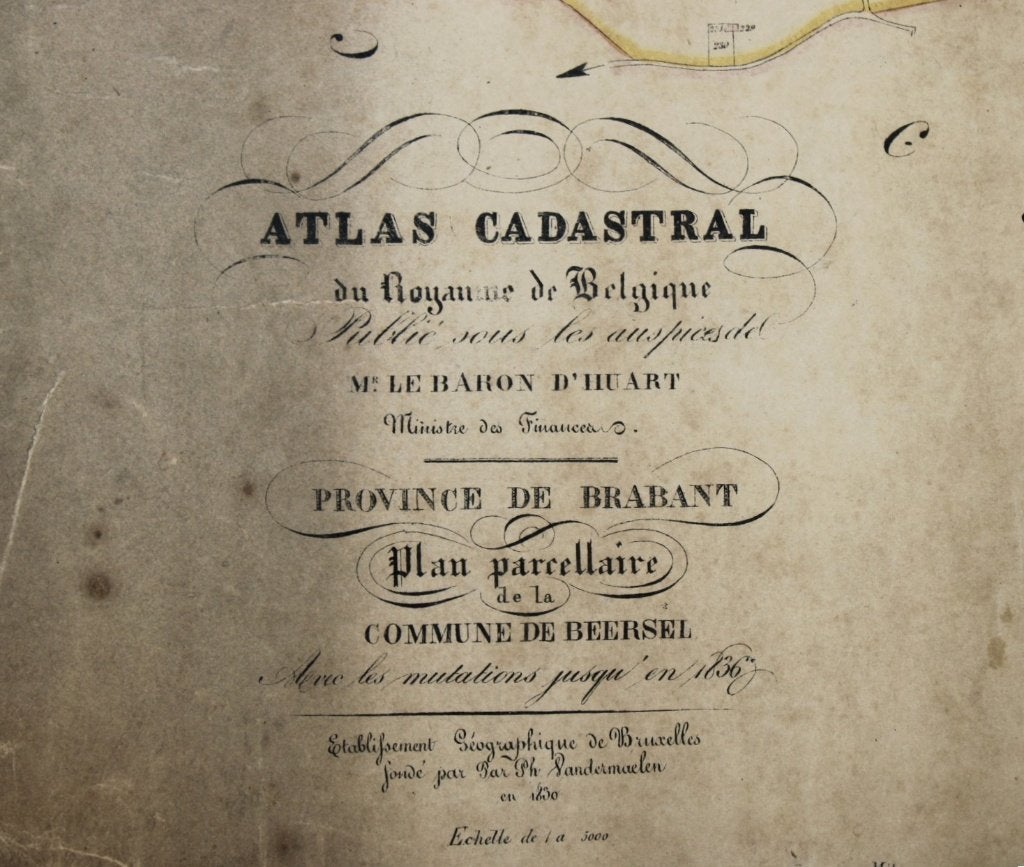 C
229
230
C
ATLAS CADASTRAL
du Royaume de Belgique
Publié sous les auspices de
MR. LE BARON D'HUART
Ministre des Finances.
PROVINCE DE BRABANT
Plan parcellaire
de la
COMMUNE DE BEERSEL
Avec les mutations jusqu'en 1836
Etablissement Géographique de Bruxelles
fondé par Par Ph Vandermaelen
en 1830
Echelle de 1 a 5000